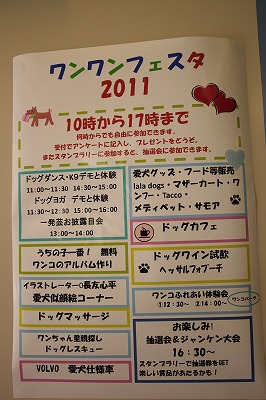 ワンワンフェスタ
2011
10時から17時まで
何時からでも自由に参加できます。
受付でアンケートに記入し、プレゼントをどうぞ。
またスタンプラリーに参加すると、抽選会に参加できます。
ドッグダンス・K9デモと体験
11:00～11:30 14:30～15:00
ドッグヨガ デモと体験
11:30～12:30 15:00～16:00
一発芸お披露目会
13:00～14:00
うちの子一番！ 無料
ワンコのアルバム作り
イラストレーター○長友心平
愛犬似顔絵コーナー
ドッグマッサージ
ワンちゃん里親探し
ドッグレスキュー
VOLVO 愛犬仕様車
愛犬グッズ・フード等販売
lala dogs・マザーカート・ワ
ンフー・Tacco・
メディベット・サモア
ドッグカフェ
ドッグワイン試飲
ヘッサルフォプーチ
ワンコふれあい体験会
①12:30～ ②14:00～
お楽しみ！
抽選会＆ジャンケン大会
16：30～
スタンプラリーで抽選券をGET
楽しい賞品があたるかも！